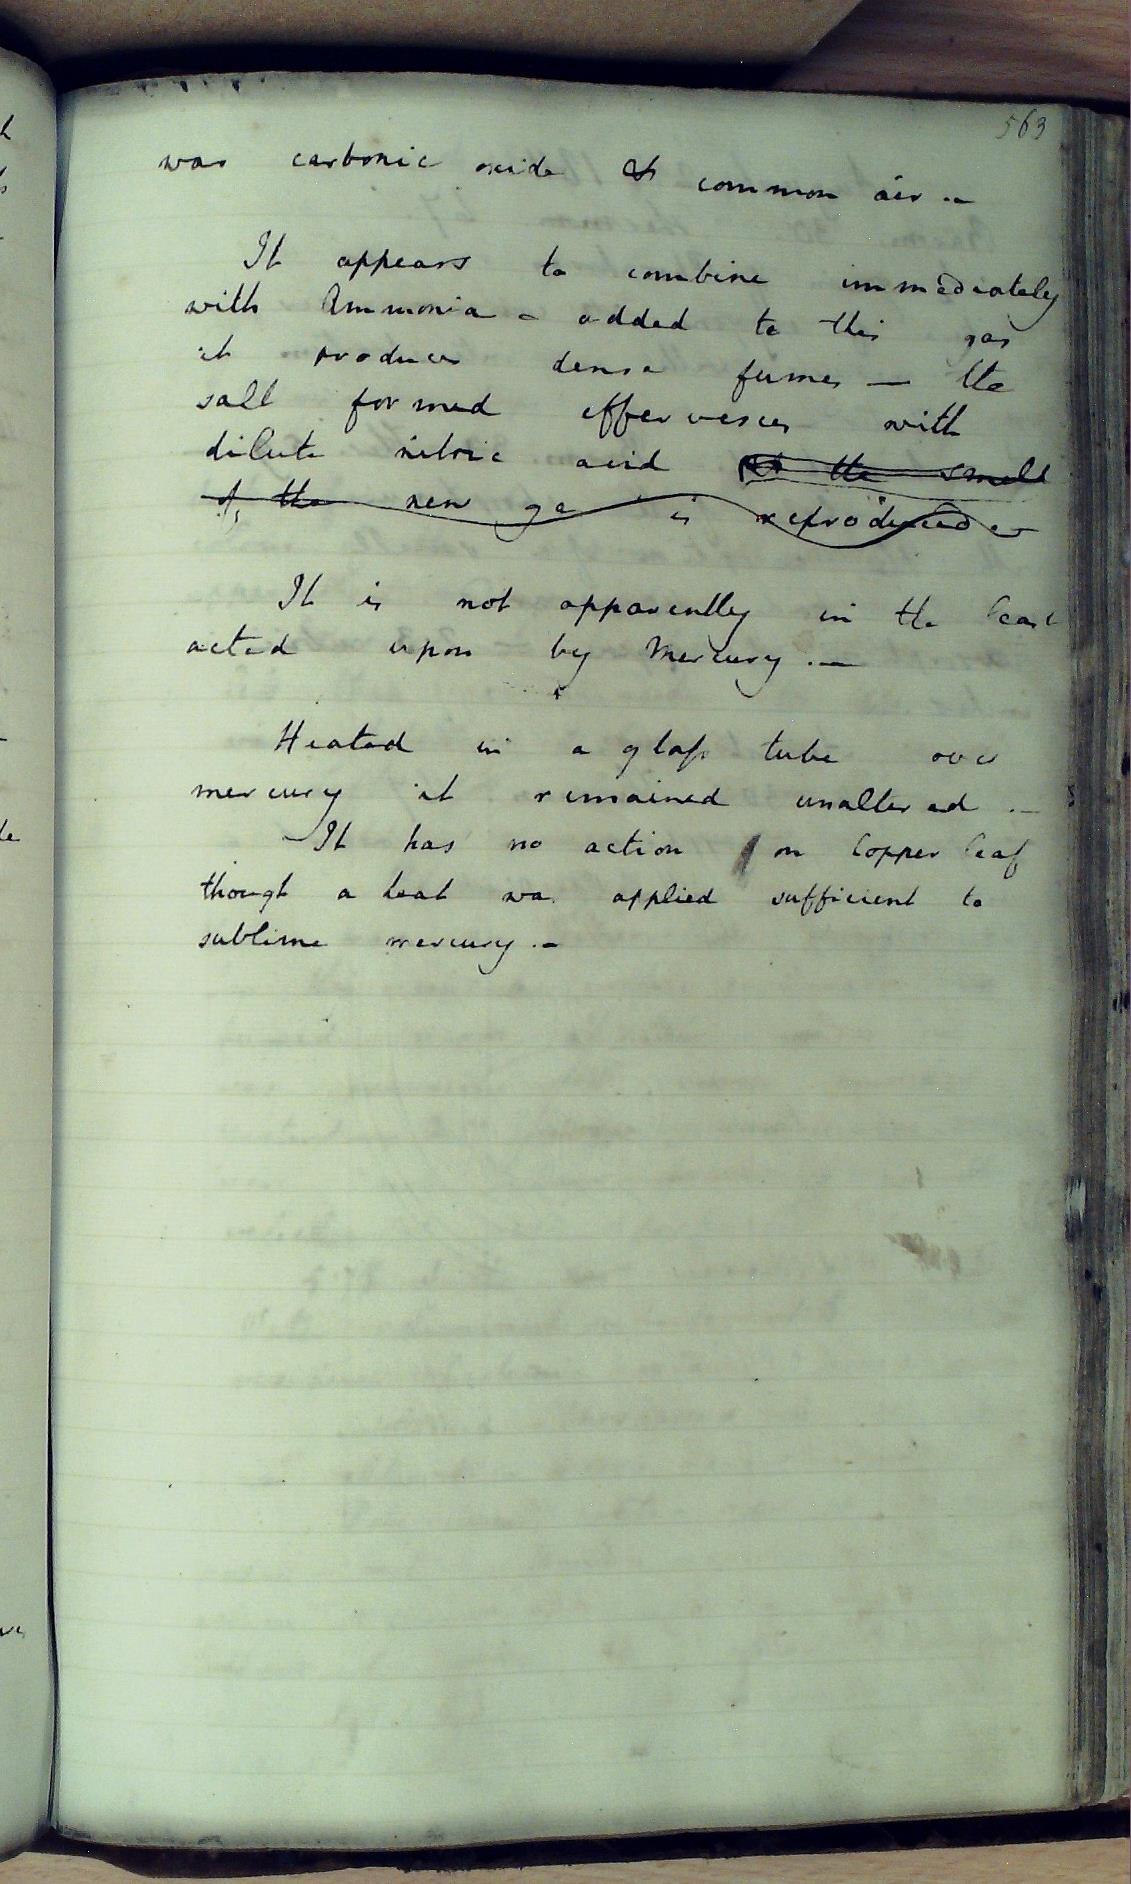 563
was carbonic oxide & common air.—
It appears to combine immediately
with Ammonia - added to this gas
it produces dense fumes — the
salt formed effervesces with
dilute nitric acid the smell
of the new gas is reproduced
It is not apparently in the least
acted upon by Mercury.—
Heated in a glass tube over
mercury it remained unaltered —
It has no action on Copper leaf
though a heat was applied sufficient to
sublime mercury.—